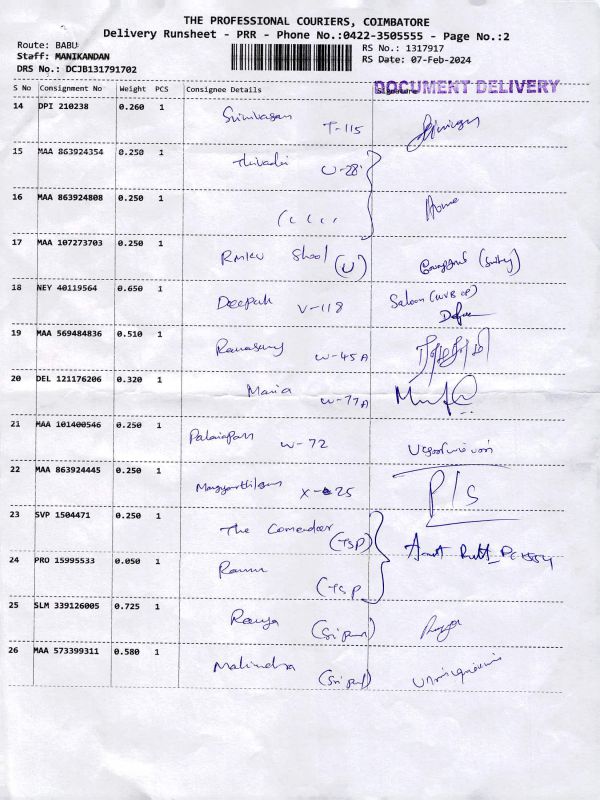 THE PROFESSIONAL COURIERS, COIMBATORE
Delivery Runsheet - PRR - Phone No.:0422-3505555 - Page No.:2
Route: BABU
Staff: MANIKANDAN
DRS No.: DCJB131791702
RS No.: 1317917
RS Date: 07-Feb-2024
DOCUMENT DELIVERY
S No Consignment No Weight PCS Consignee Details Signature
14 DPI 210238 0.260 1 Srinivasan T-115
15 MAA 863924354 0.250 1 U-28
16 MAA 863924808 0.250 1 Home
17 MAA 107273703 0.250 1 (U)
18 NEY 40119564 0.650 1 Deepak V-118 Saloon
19 MAA 569484836 0.510 1 Ramasamy W-45A
20 DEL 121176206 0.320 1 Maria W-77A
21 MAA 101400546 0.250 1 Palaiapan W-72
22 MAA 863924445 0.250 1 X-25 P/S
23 SVP 1504471 0.250 1 The Comender (TSP)
24 PRO 15995533 0.050 1 (TSP
25 SLM 339126005 0.725 1 Ramya
26 MAA 573399311 0.580 1 Mahindra